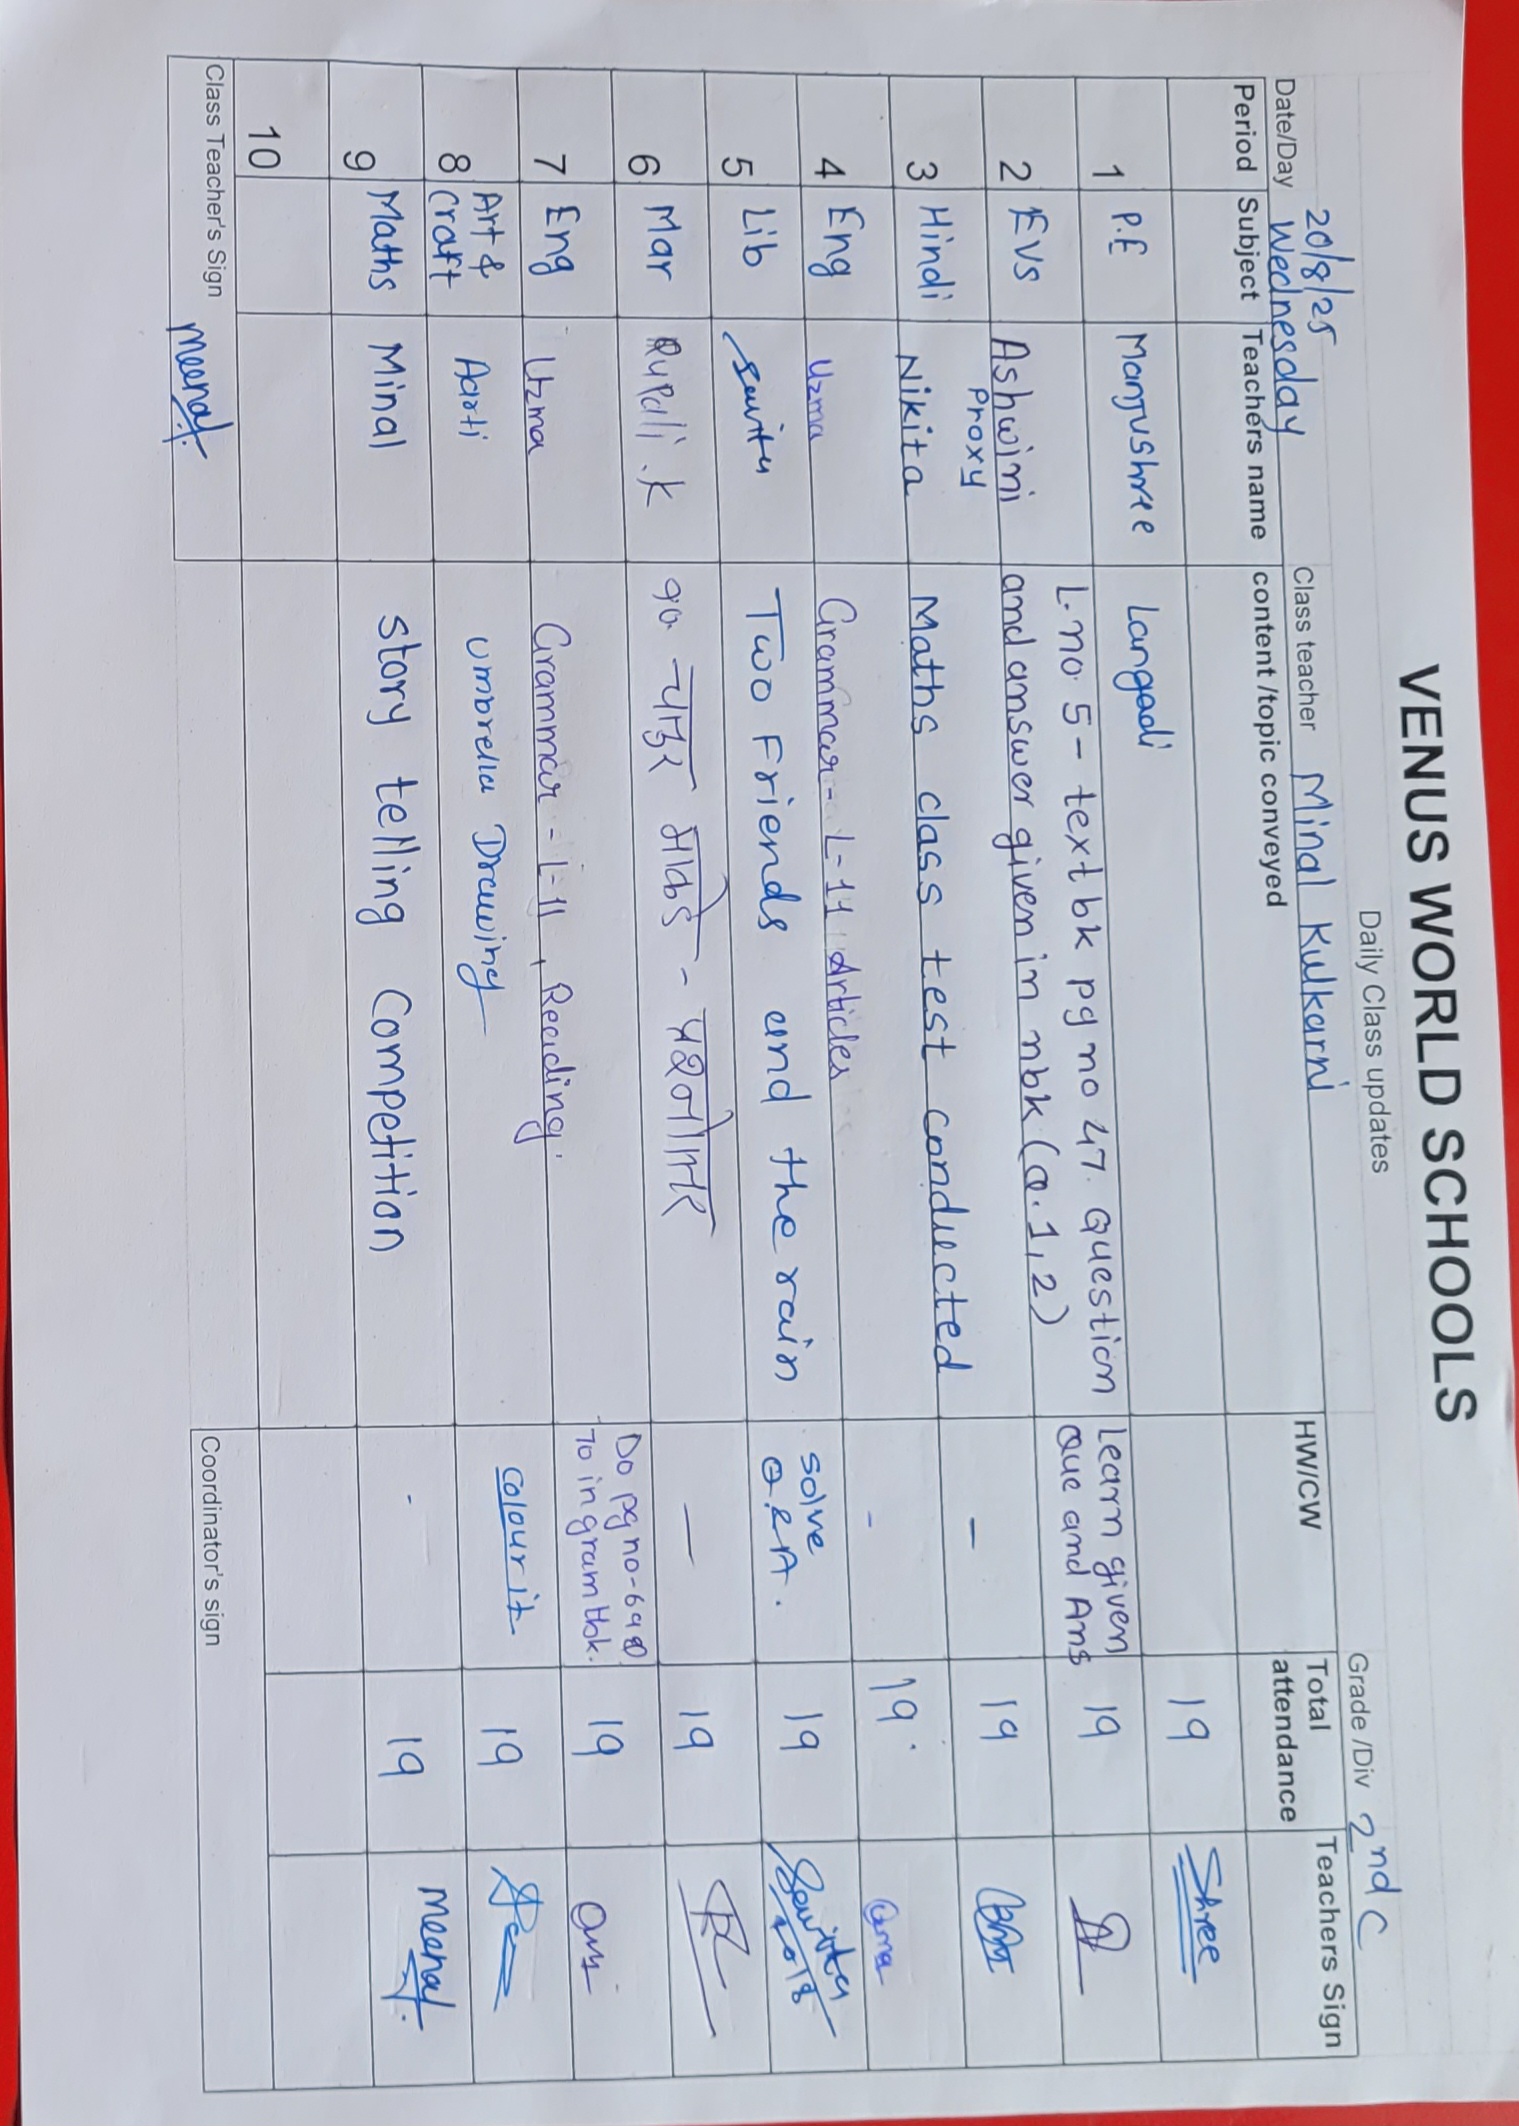 VENUS WORLD SCHOOLS
Daily Class updates
Grade /Div 2nd C
Date/Day 20/8/25 Wednesday
Class teacher Minal Kulkarni
Period Subject Teachers name content /topic conveyed HW/CW Total attendance Teachers Sign
1 P.E Manjushree Langadi 19 Shree
2 EVS Ashwini L.no.5 - text bk pg no 47. Question learn given 19
and answer given in nbk (Q.1,2) Que and Ans
3 Hindi Proxy Nikita Maths class test conducted – 19
4 Eng Uzma Grammar - L-11 Articles - 19. Uzma
5 Lib Savita Two Friends and the rain solve Q&A. 19 Savita 20/8
6 Mar Rupali.k १० — 19
7 Eng Uzma Grammar - L-11, Reading. Do pg no-69 & 70 in gram tbk. 19
8 Art & Craft Aarti Umbrella Drawing colour it 19
9 Maths Minal Story telling Competition - 19 Meenal.
10
Class Teacher's Sign Meenal. Coordinator's sign